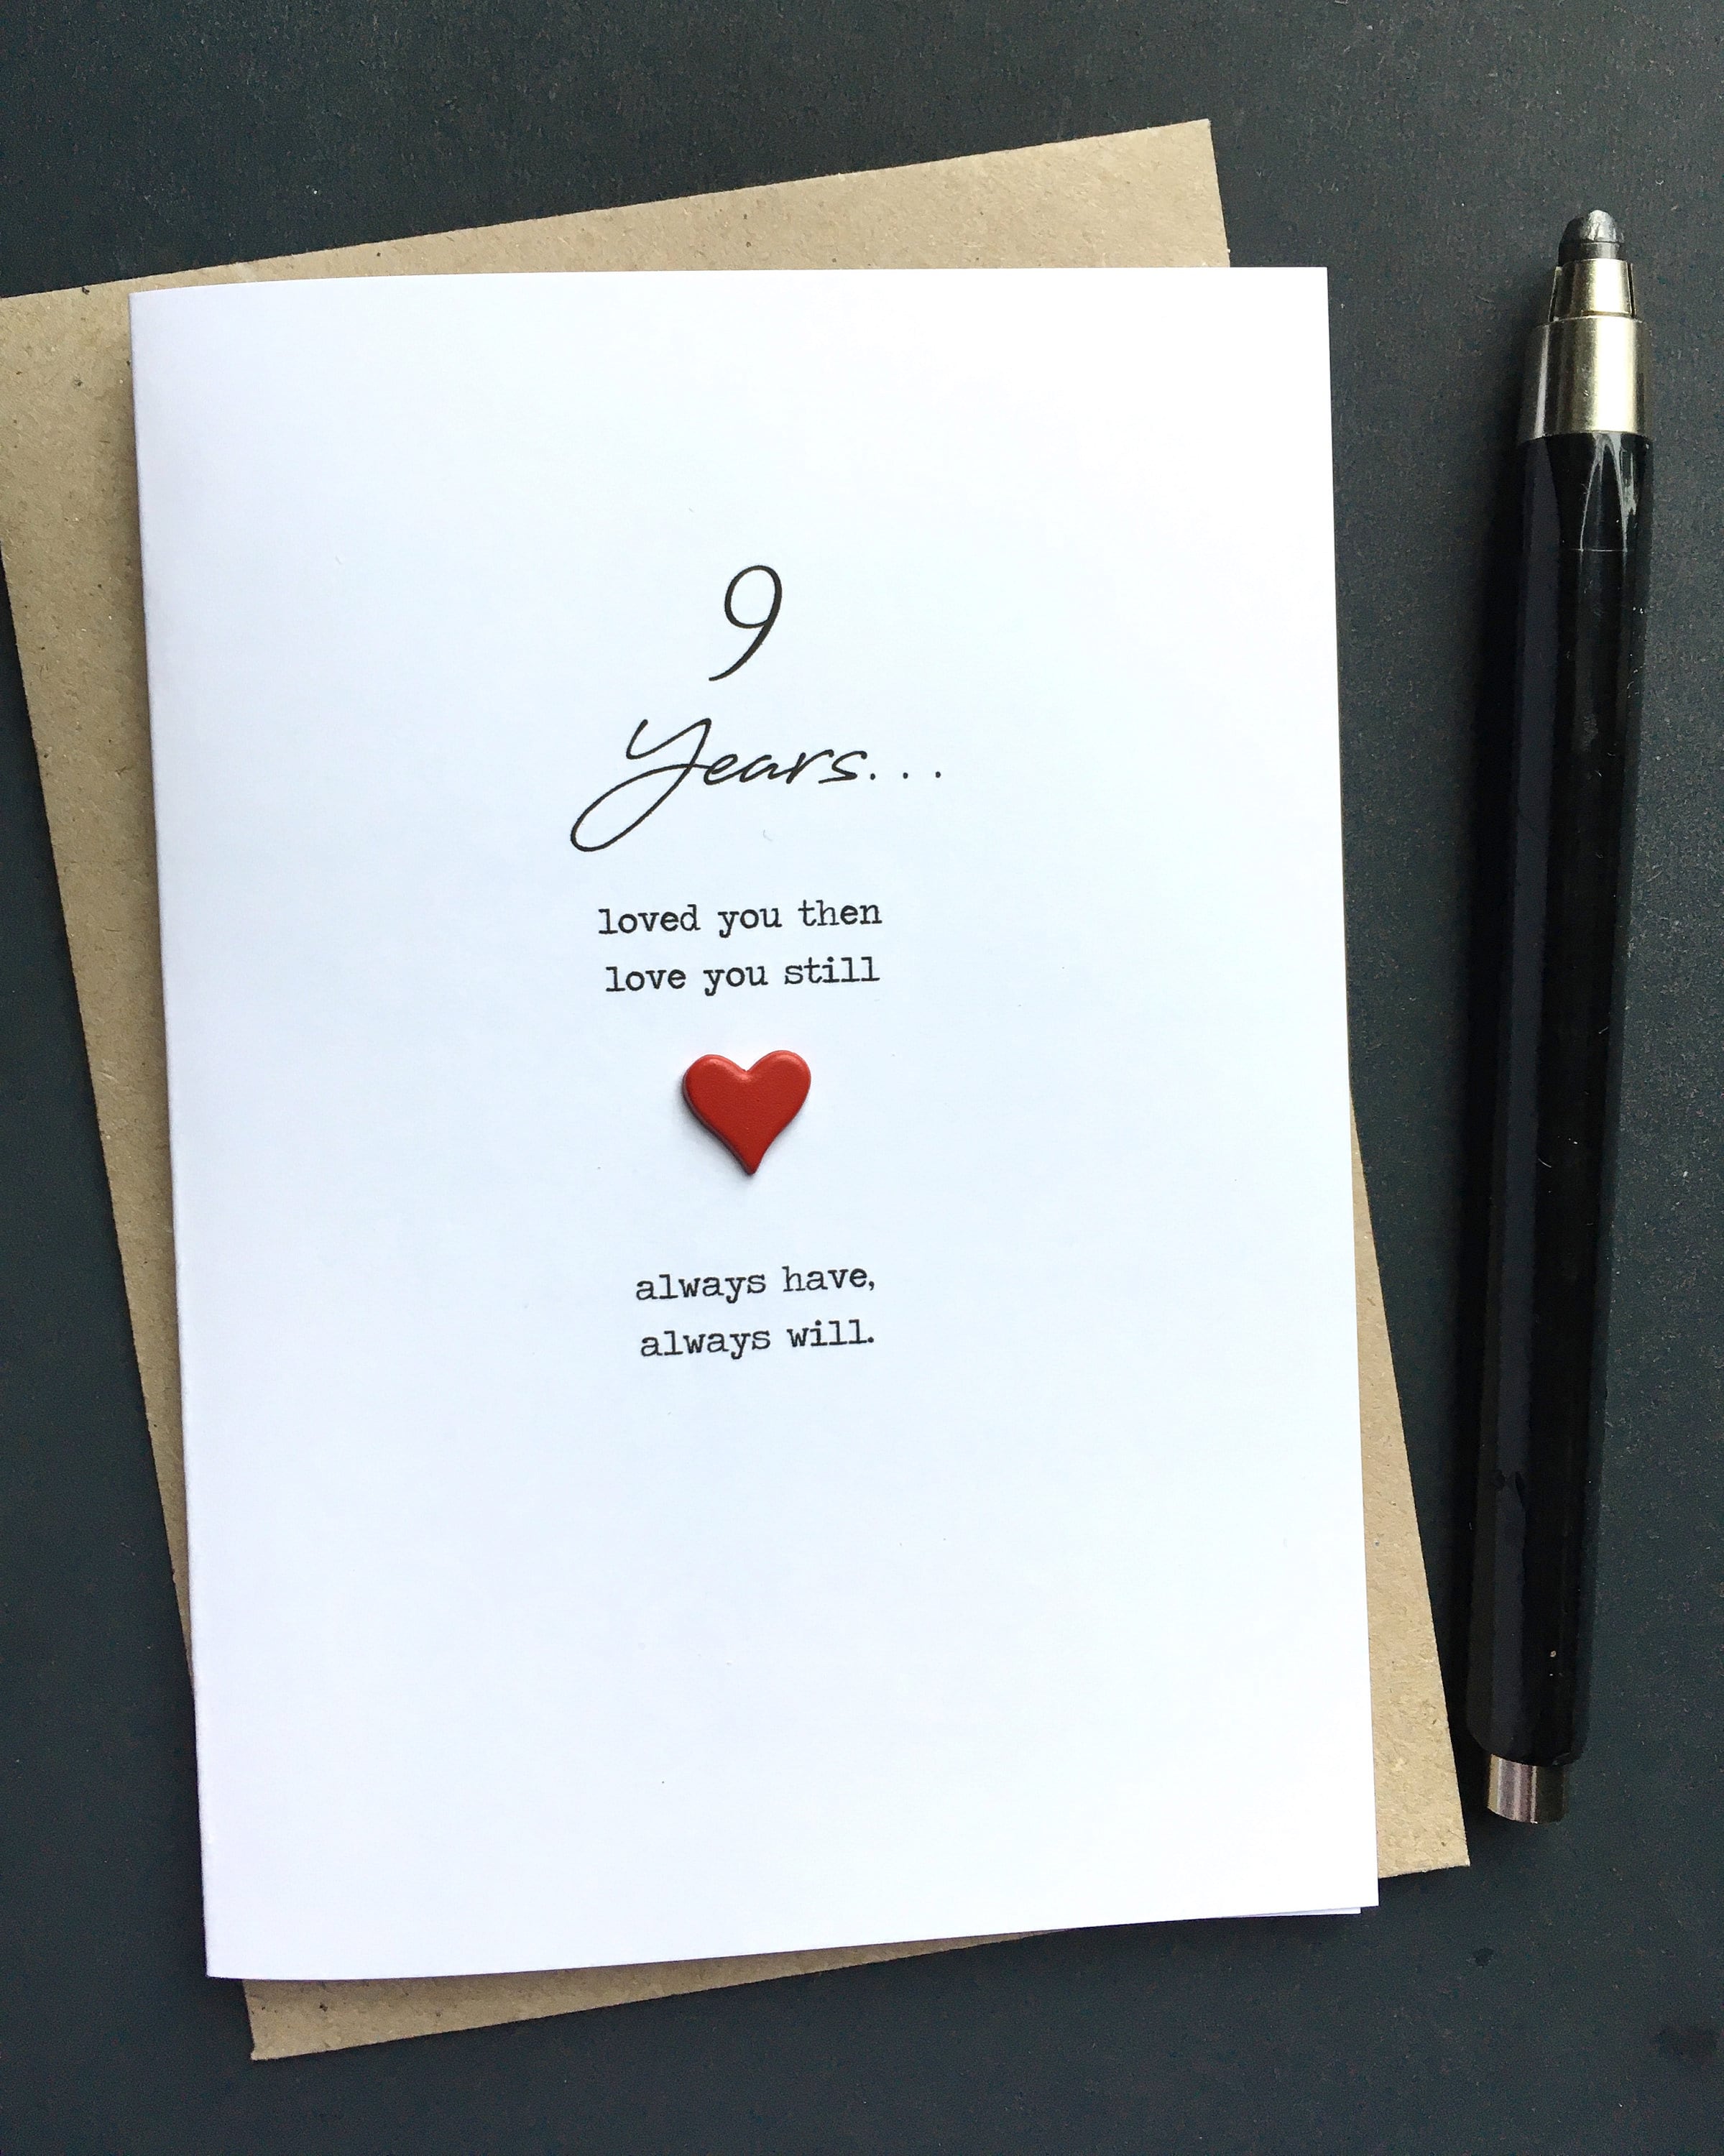 9
Years...
loved you then
love you still
always have,
always will.